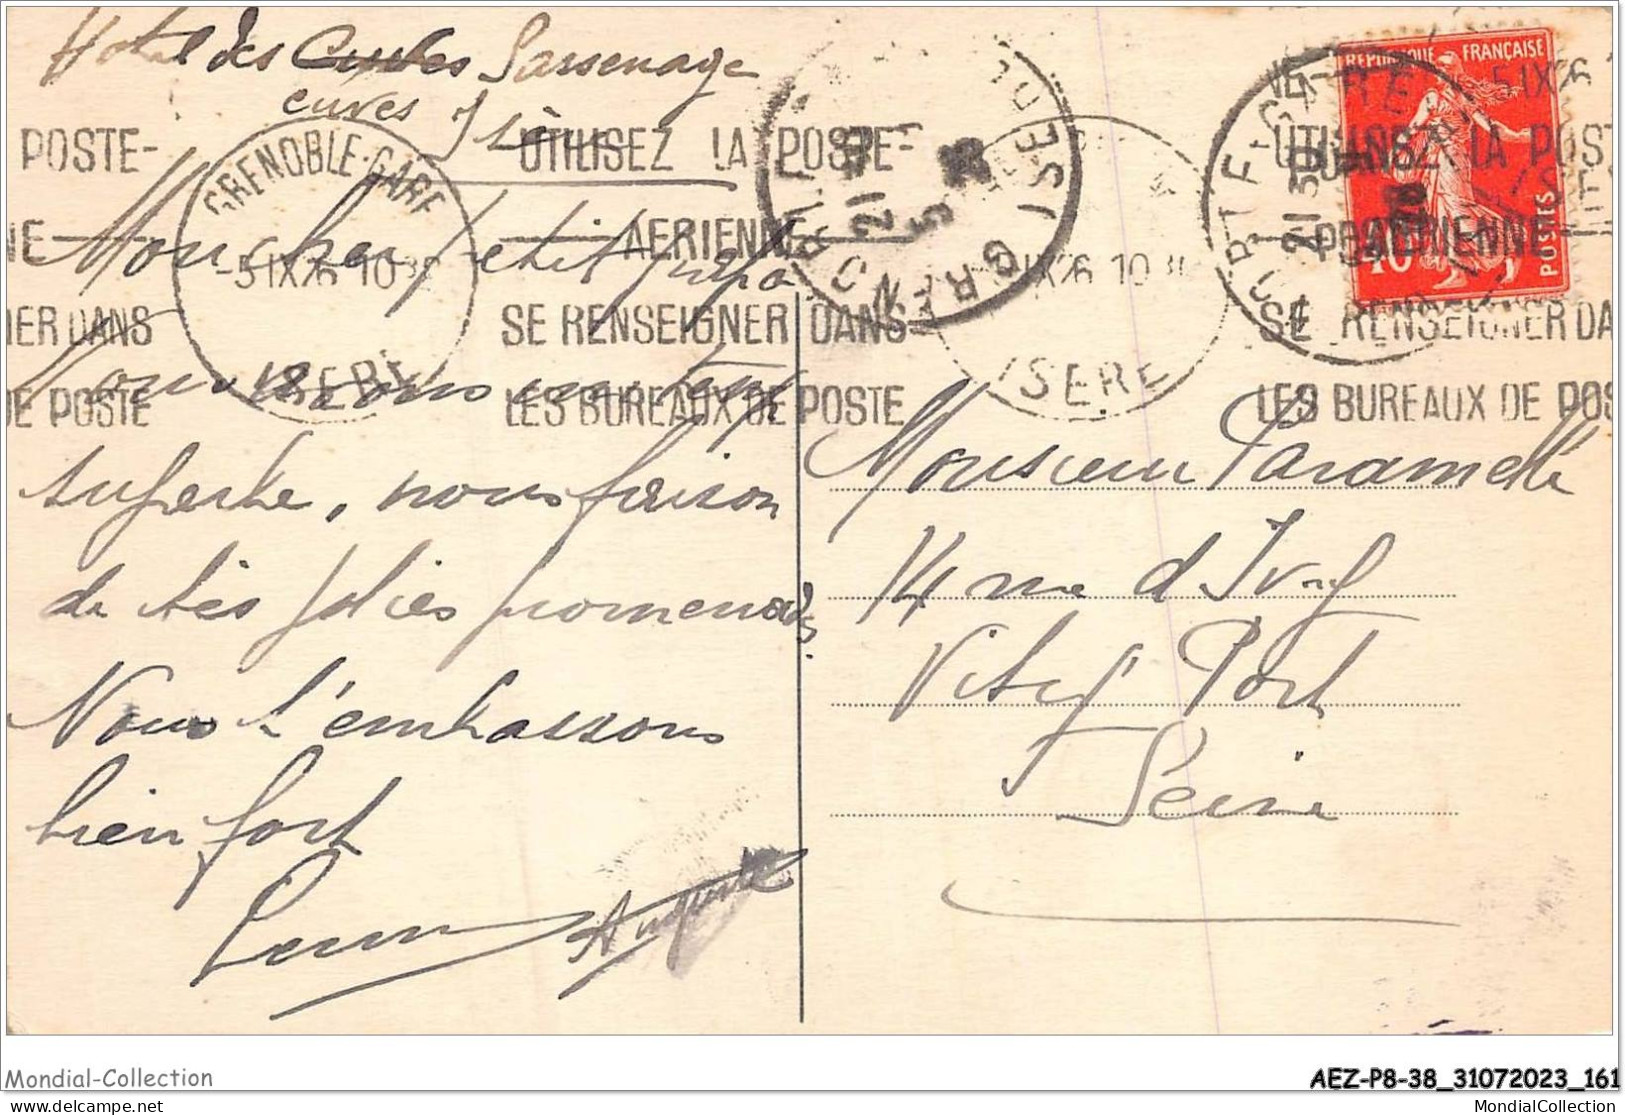 Hotel des Cuves Sassenage
cuves Isère
Mon cher petit papa
Nous avons un temps
superbe, nous faison
de très jolies promenades
Nous t'embrassons
bien fort
Auguste
Monsieur Paramelle
14 rue d'Ivry
Vitry Port
Seine
RÉPUBLIQUE FRANÇAISE
POSTES
10
GRENOBLE-GARE
-5 IX 26 10
ISERE
POSTE-
NE
IER DANS
DE POSTE
UTILISEZ LA POSTE-
AERIENNE
SE RENSEIGNER DANS
LES BUREAUX DE POSTE
IX 26 10
ISERE
21
5
GRENO
ISE
21 30
5 IX 26
UTILISEZ LA POST
AERIENNE
SE RENSEIGNER DA
LES BUREAUX DE POS
Mondial-Collection
AEZ-P8-38_31072023_161
Mondial-Collection.fr
MondialCollection